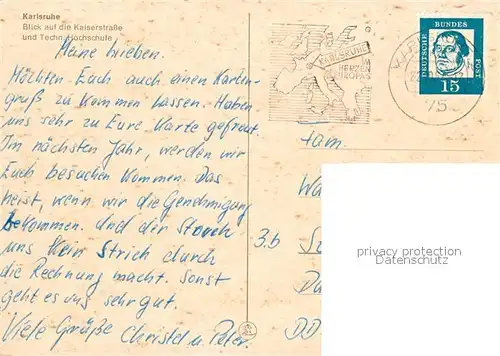 Karlsruhe
Blick auf die Kaiserstraße
und Techn. Hochschule
Meine Lieben.
Möchten Euch auch einen Karten-
gruß zu kommen lassen. Haben
uns sehr zu Eure Karte gefreut.
Im nächsten Jahr, werden wir
Euch besuchen kommen. Das
heist, wenn wir die Genehmigung
bekommen. und der Storch
uns kein Strich durch
die Rechnung macht. Sonst
geht es uns sehr gut.
Viele Grüße Christel u. Peter.
KARLSRUHE
IM
HERZEN
EUROPAS
75
DEUTSCHE
BUNDES
POST
15
Fam.
3.b
DD
privacy protection
Datenschutz